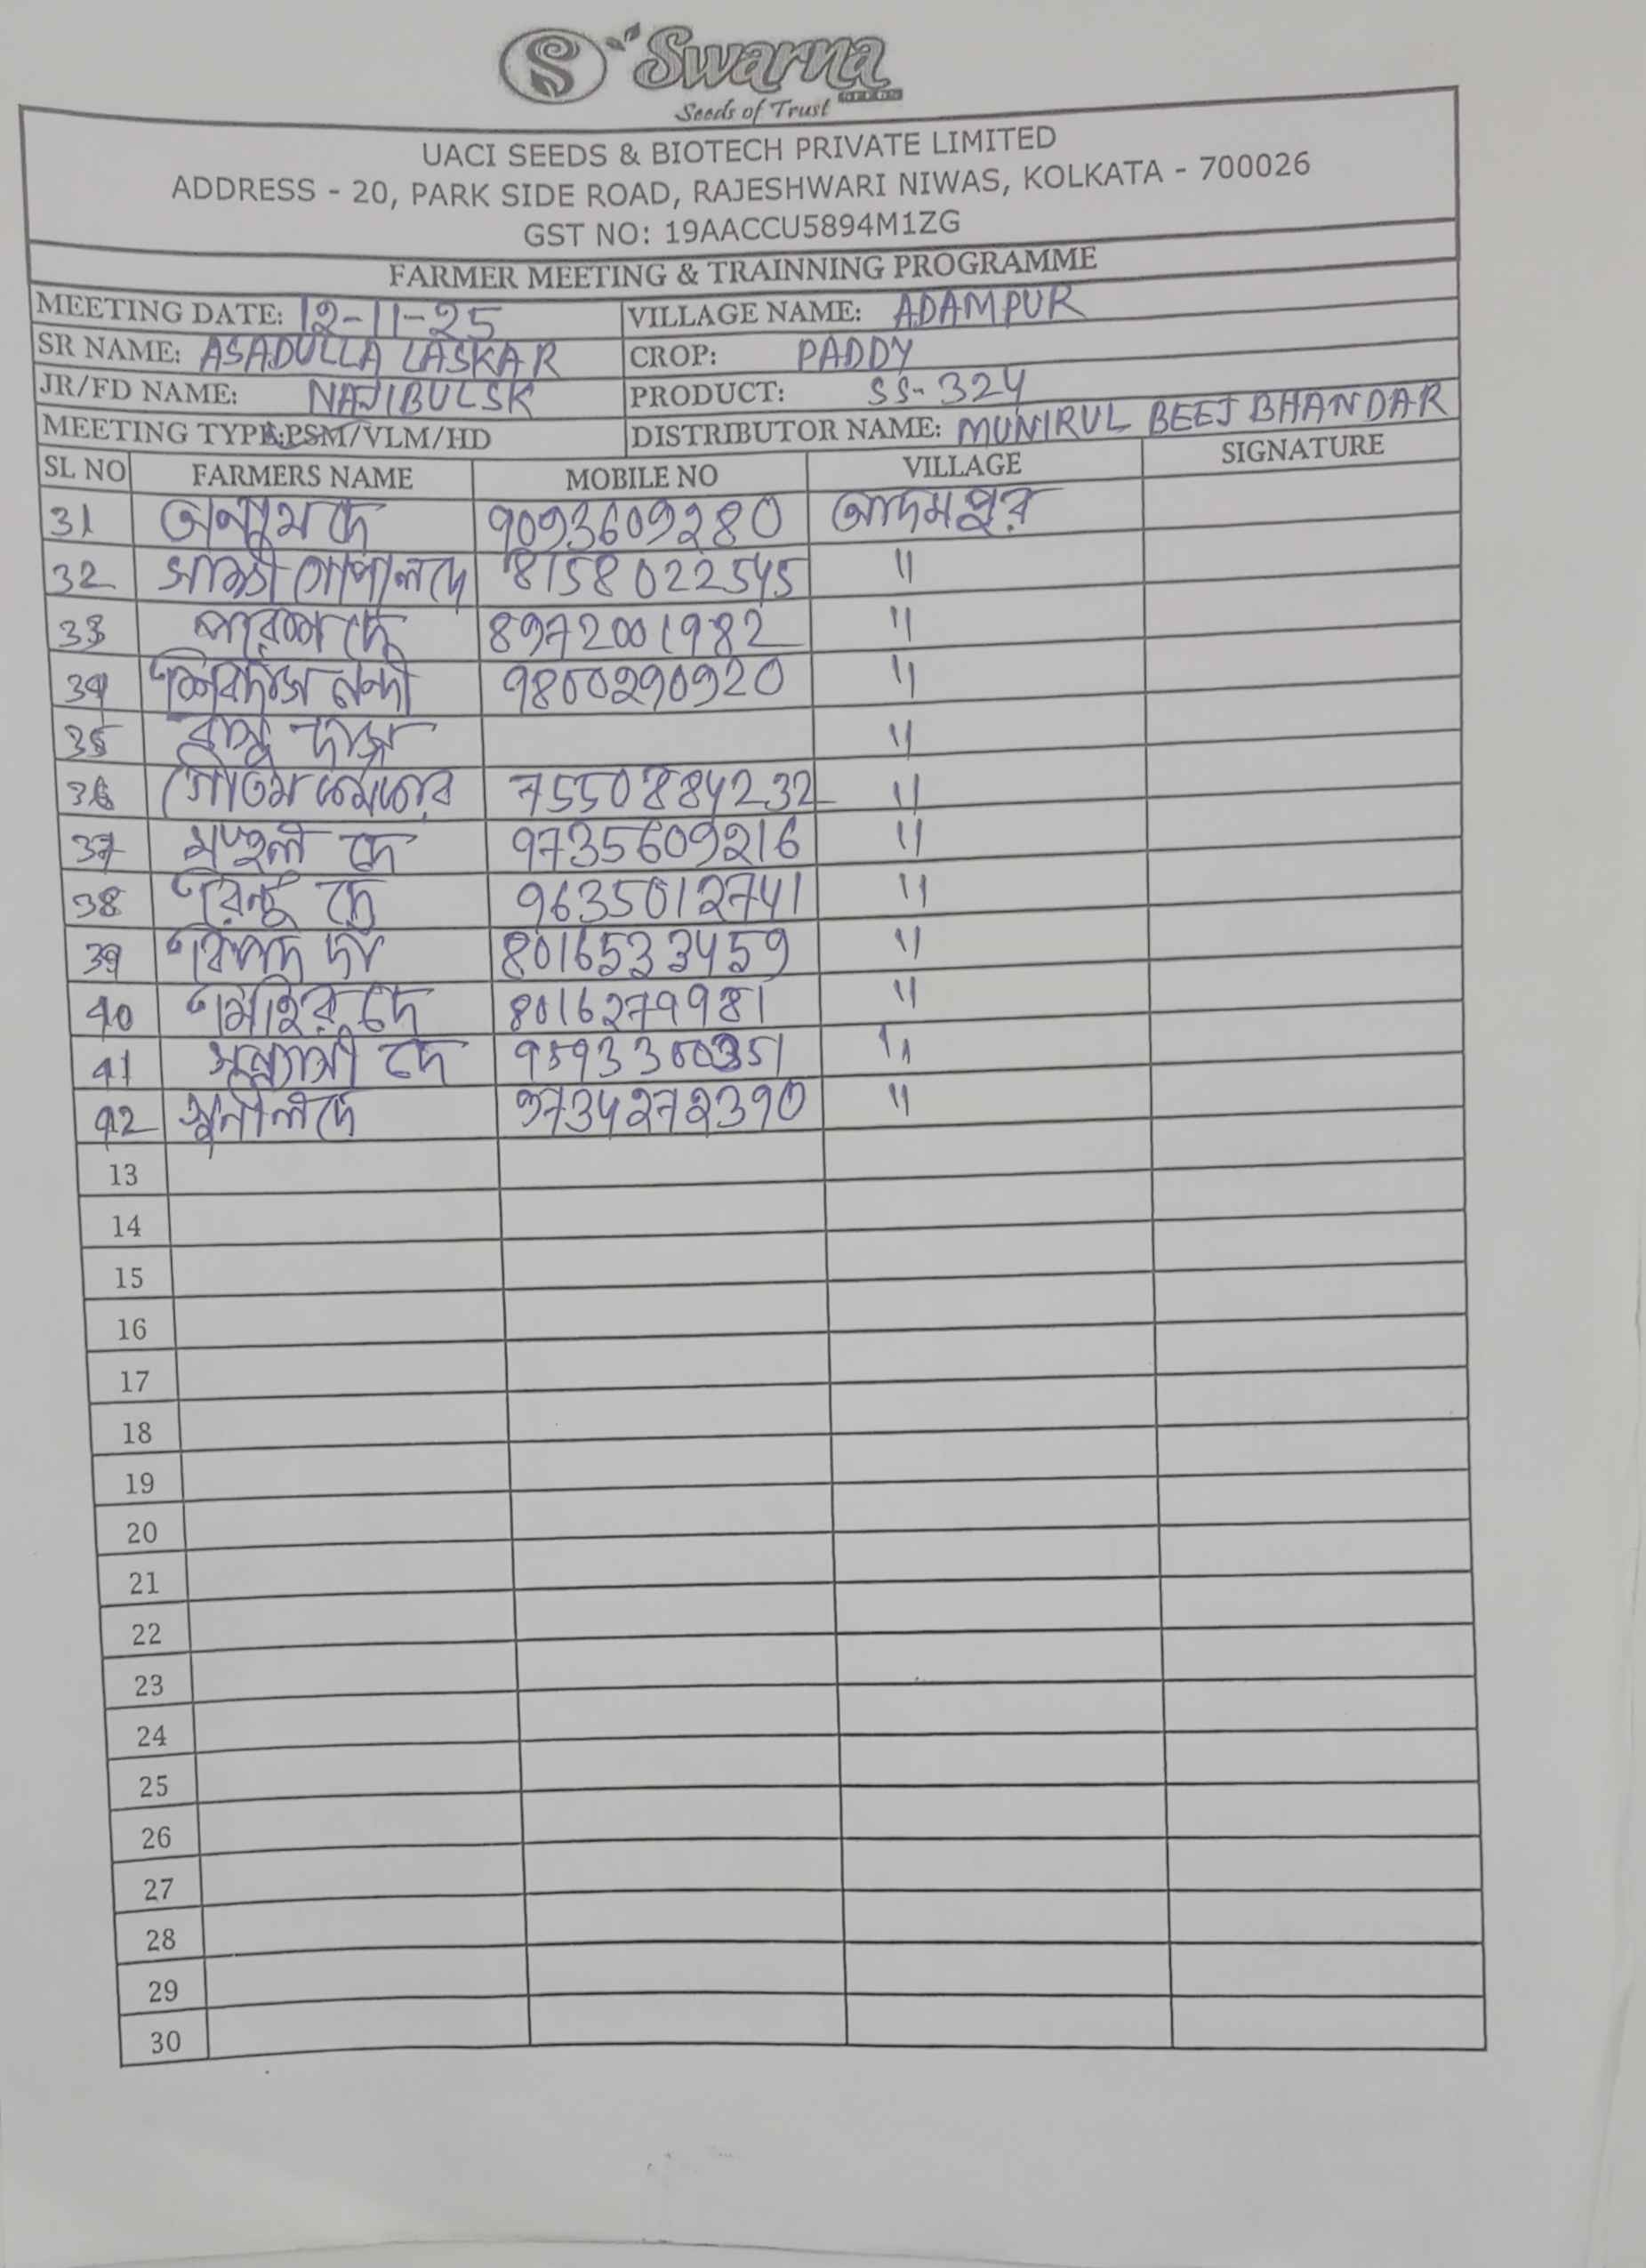 S Swarna
SEEDS
Seeds of Trust
UACI SEEDS & BIOTECH PRIVATE LIMITED
ADDRESS - 20, PARK SIDE ROAD, RAJESHWARI NIWAS, KOLKATA - 700026
GST NO: 19AACCU5894M1ZG
FARMER MEETING & TRAINNING PROGRAMME
MEETING DATE: 12-11-25 VILLAGE NAME: ADAMPUR
SR NAME: ASADULLA LASKAR CROP: PADDY
JR/FD NAME: NAJIBUL SK PRODUCT: SS-324
MEETING TYPE:PSM/VLM/HD DISTRIBUTOR NAME: MUNIRUL BEEJ BHANDAR
SL NO FARMERS NAME MOBILE NO VILLAGE SIGNATURE
31 দে 9093609280 আদমপুর
32 গোপাল দে 8158022545 "
33 দে 8972001982 "
34 শিবদাস নন্দী 9800290920 "
35 দাস "
36 গৌতম 7550884232 "
37 দে 9735609216 "
38 রিন্টু দে 9635012741 "
39 8016533459 "
40 মিহির দে 8016279981 "
41 সন্ন্যাসী দে "
42 সুনীল দে 9734272390 "
13
14
15
16
17
18
19
20
21
22
23
24
25
26
27
28
29
30